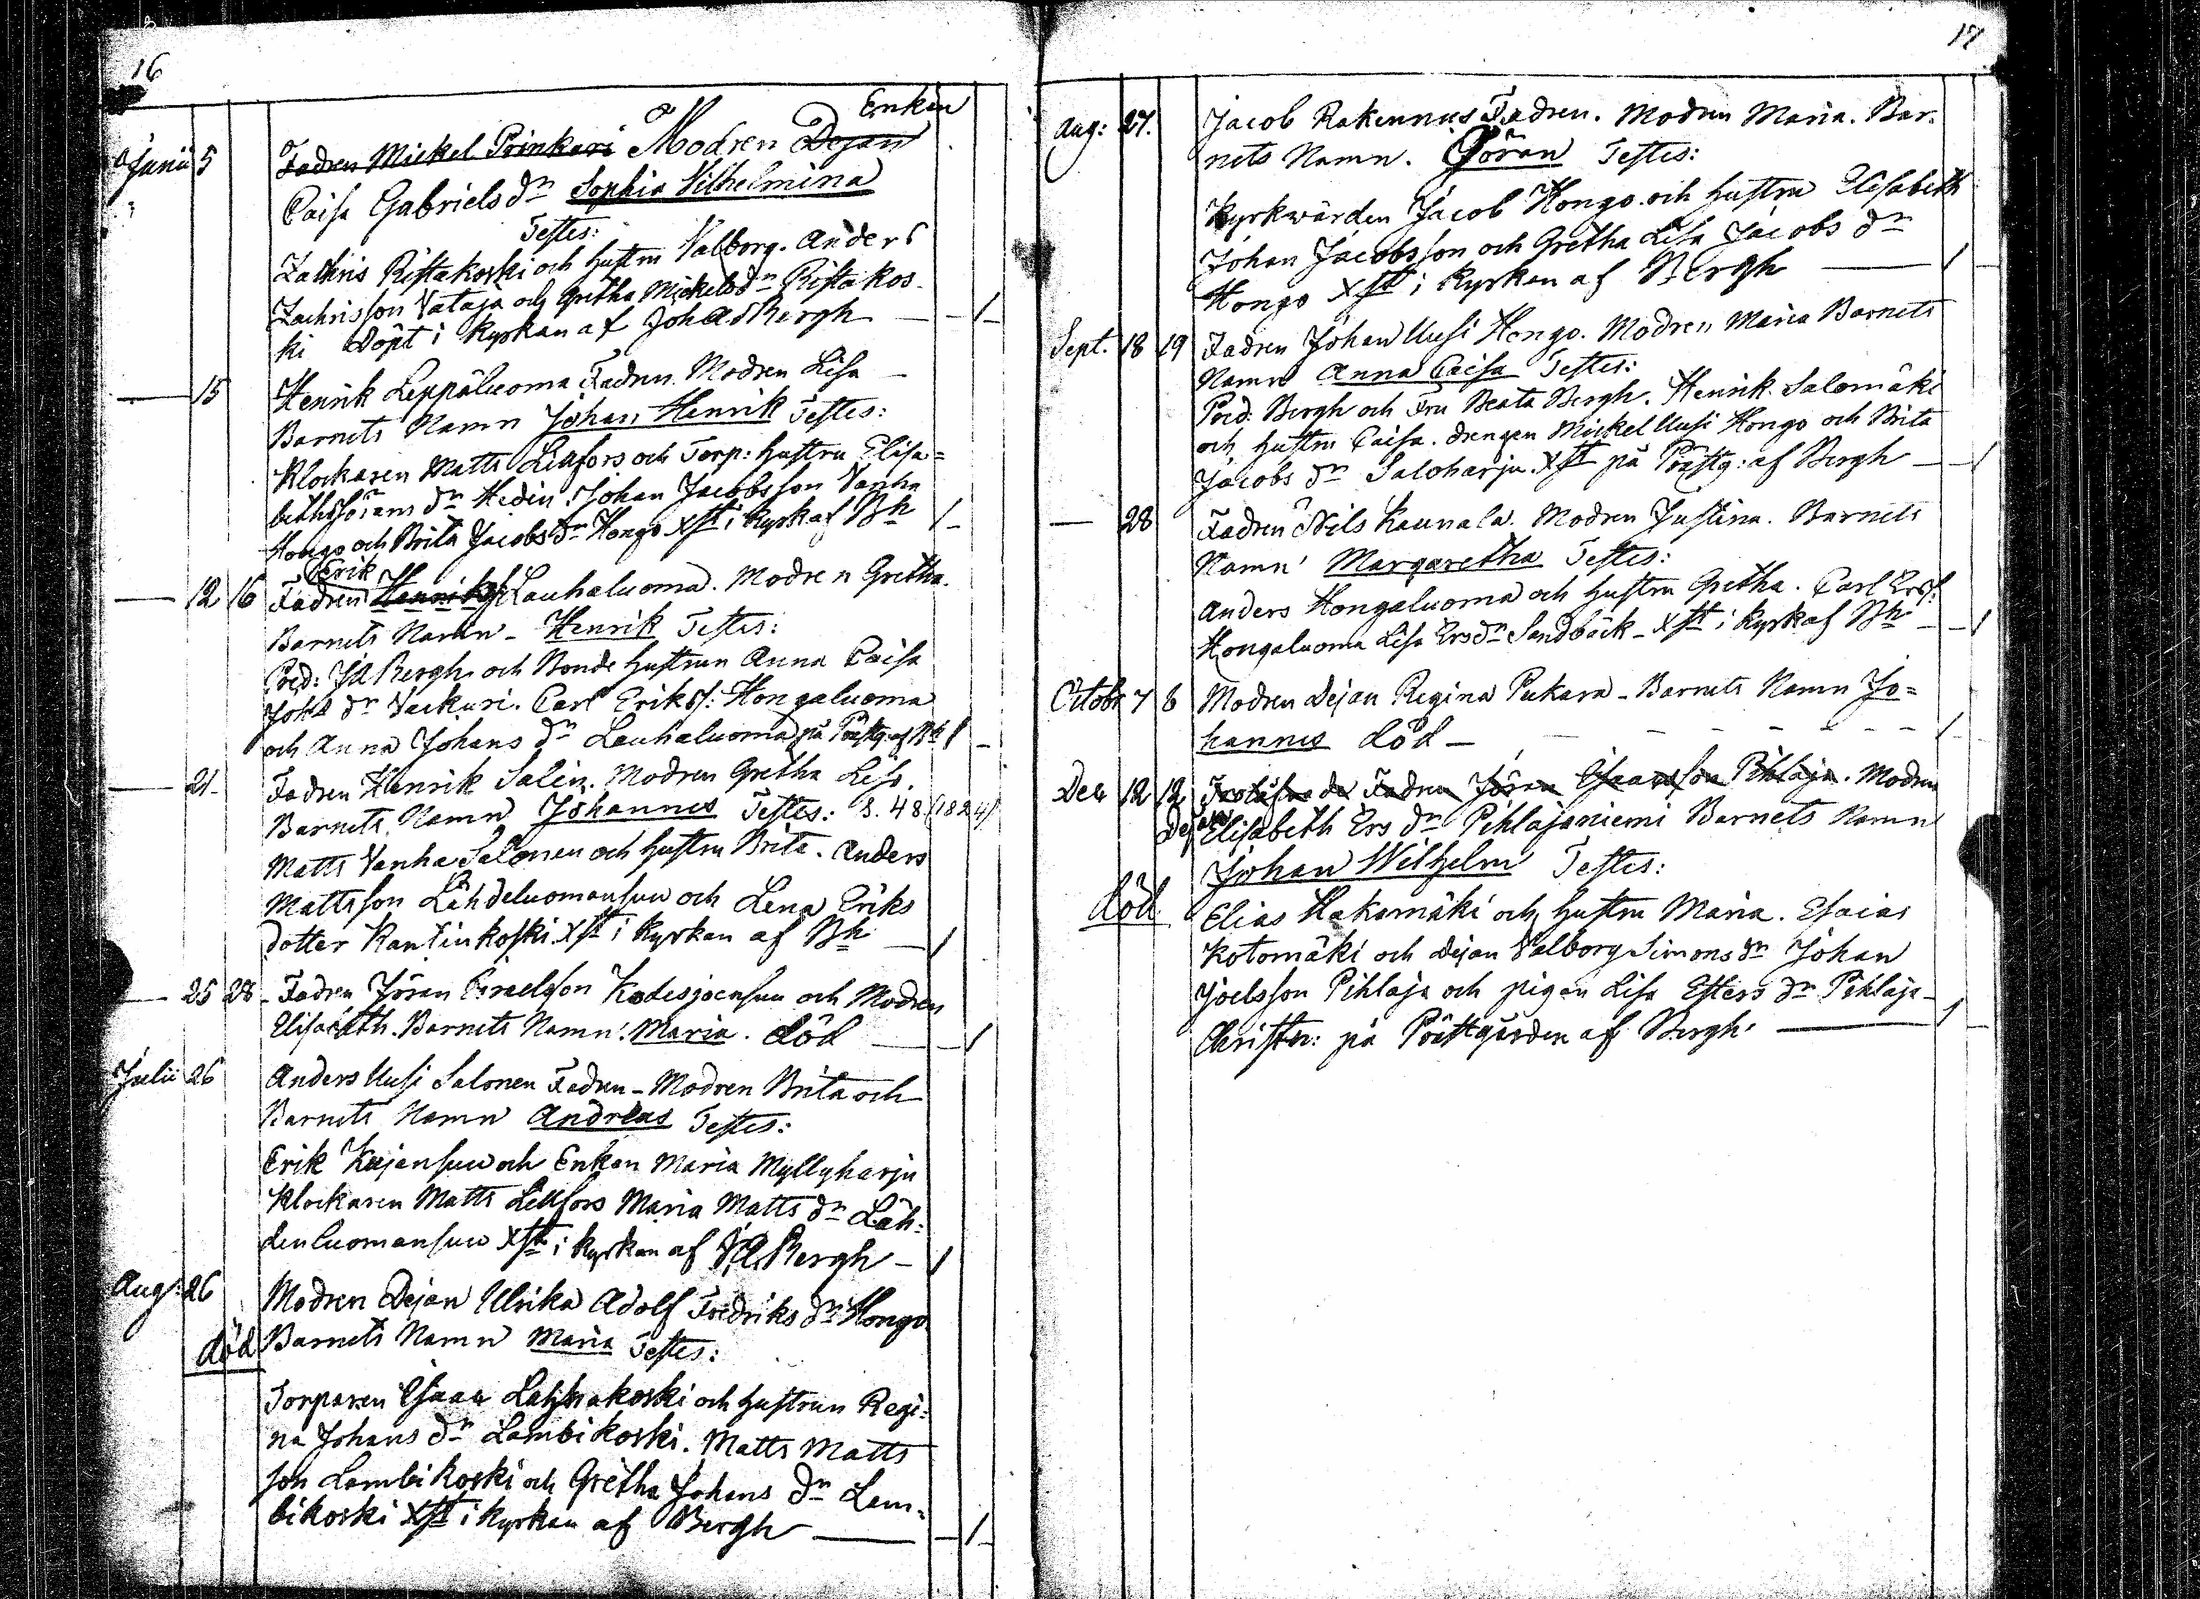 16
Enkan
Junii 5 Fadren Mickel Prinkari Modren Dejan
Caisa Gabriels dr Sophia Vilhelmina
Testes:
Zachris Ristakoski och hustru Valborg. Anders
Zachrisson Vataja och Gretha Mickels dr Ristakos-
ki Döpt i kyrkan af Joh Ad Bergh — 1
— 15 Henrik Leppäluoma Fadren. Modren Lisa —
Barnets Namn Johan Henrik Testes:
Klockaren Matts Lillfors och Torp: hustru Elisa=
beth Görans dr Hedin. Johan Jacobsson Vanha
Hongo och Brita Jacobs dr Hongo Xst i kyrk af Bh 1
Erik
— 12 16 Fadren Lauhaluoma. Modren Gretha.
Barnets Namn - Henrik Testes:
Pred: JA Bergh och Bonde hustrun Anna Caisa
Johs dr Vackuri. Carl Eriks: Hongaluoma
och Anna Johans dr Lauhaluoma på Prästg. af Bh 1
— 21 Fadren Henrik Salin. Modren Gretha Lisa.
Barnets Namn Johannes Testes: S. 48 (1824)
Matts Vanha Salonen och hustru Brita. Anders
Mattsson Lähdeluomansuu och Lena Eriks
dotter Rantinkoski Xst i kyrkan af Bh — 1
— 25 28 - Fadren Jöran Israelsson Kodesjoensuu och Modren
Elisabeth. Barnets Namn: Maria. död — 1
Julii 26 Anders Uusi Salonen Fadren - Modren Brita och
Barnets Namn Andreas Testes:
Erik Kujansuu och Enkan Maria Myllyharju
Klockaren Matts Lillfors Maria Matts dr Läh=
denluomansuu Xst i kyrkan af JA Bergh - 1
Aug: 26 Modren Dejan Ulrika Adolf Fredriks dr Hongo
död Barnets Namn Maria Testes:
Torparen Esaias Lambikoski och hustrun Regi=
na Johans dr Lambikoski. Matts Matts
son Lambikoski och Gretha Johans dr Lam=
bikoski Xst i kyrkan af Bergh — 1
17
Aug: 27. Jacob Rakennus Fadren. Modren Maria. Bar-
nets Namn. Göran Testes:
Kyrkwärden Jacob Hongo och hustru Elisabeth
Johan Jacobsson och Gretha Lisa Jacobs dr
Hongo Xst i kyrkan af Bergh — 1
Sept. 18 19 Fadren Johan Uusi Hongo. Modren Maria Barnets
Namn Anna Caisa Testes:
Pred: Bergh och Fru Beata Bergh. Henrik Salomäki
och hustru Caisa. drengen Mickel Uusi Hongo och Brita
Jacobs dr Saloharju. Xst på Prästg: af Bergh — 1
— 28 Fadren Nils Kaunala. Modren Justina. Barnets
Namn Margaretha Testes:
Anders Hongaluoma och hustru Gretha. Carl Ers:
Hongaluoma Lisa Ers dr Sandbäck - Xst i kyrk af Bh — 1
Octobr 7 8 Modren Dejan Regina Pukara - Barnets Namn Jo=
hannes död — 1
Dec 12 12 Fadren Jöran Esaiasson Pihlaja. Modren
Dejan Elisabeth Ers dr Pihlajaniemi Barnets Namn
Johan Wilhelm Testes:
död Elias Hakamäki och hustru Maria. Esaias
Kotomäki och Dejan Valborg Simons dr Johan
Joelsson Pihlaja och pigan Lisa Esters dr Pihlaja-
Christn: på Prästgården af Bergh. — 1